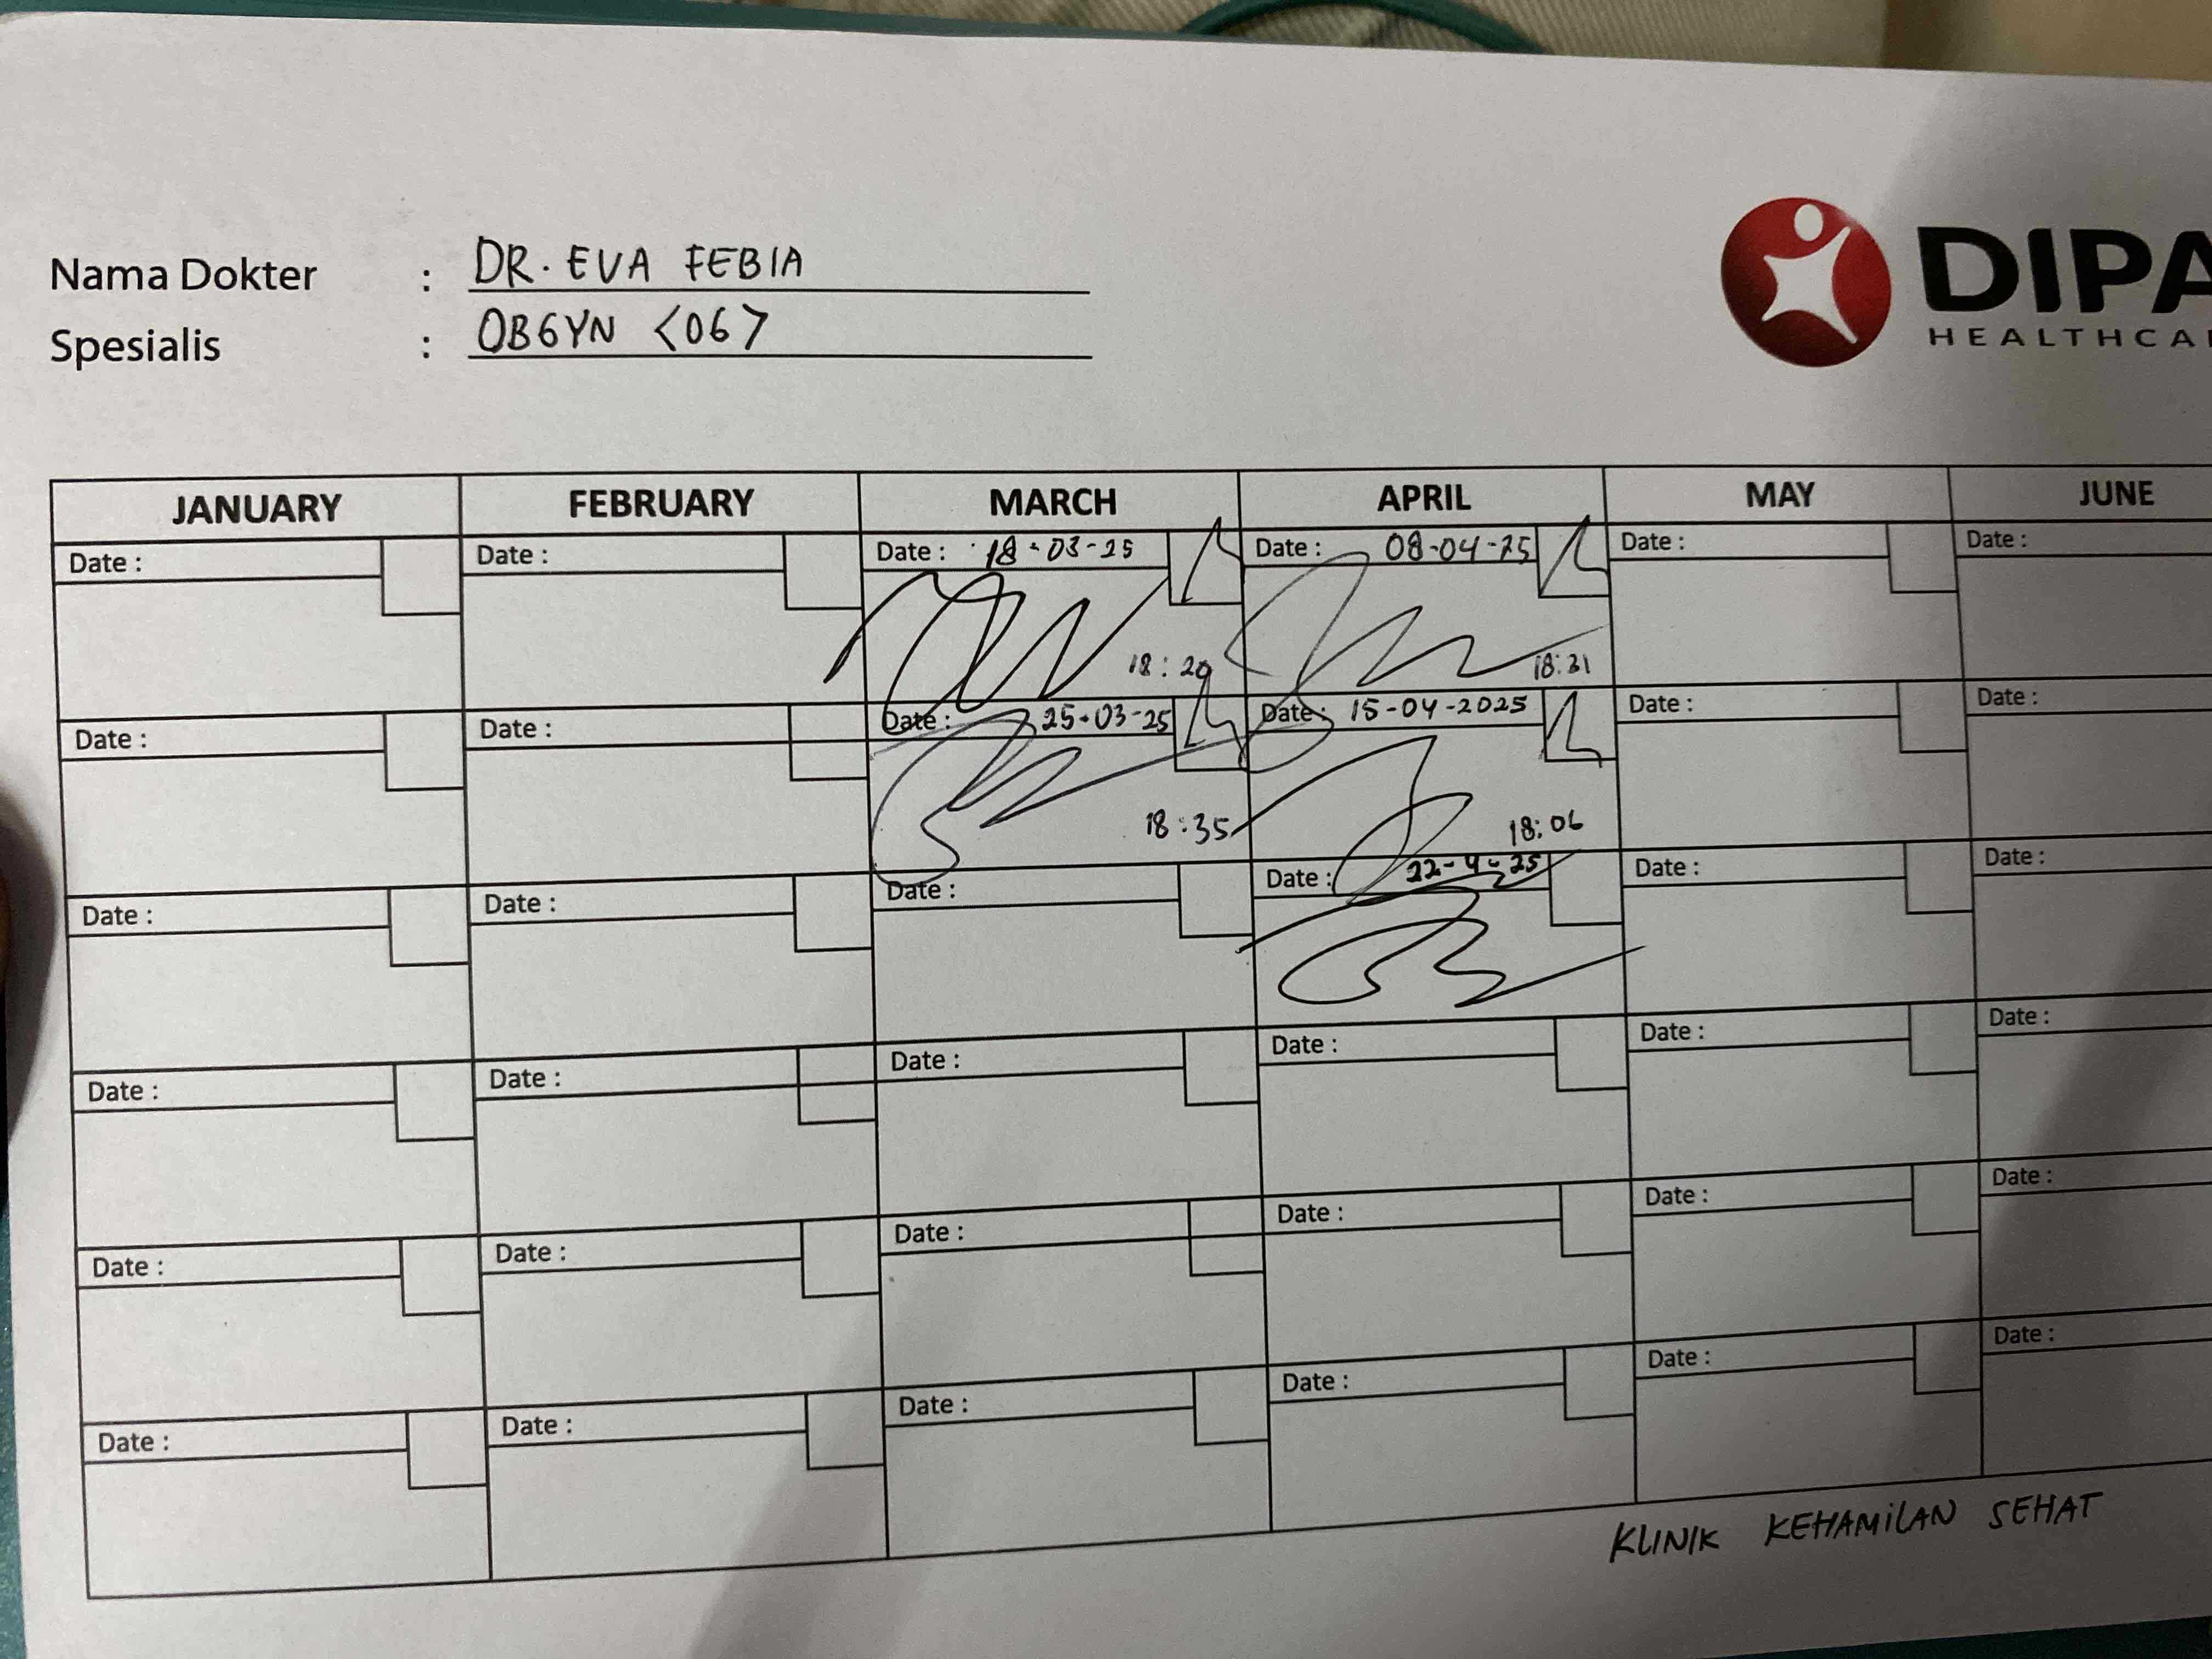 Nama Dokter : DR. EVA FEBIA
Spesialis : OBGYN <06>
DIPA
HEALTHCA
JANUARY FEBRUARY MARCH APRIL MAY JUNE
Date : Date : Date : 18-03-25 Date : 08-04-25 Date : Date :
18:20 18:31
Date : Date : Date : 25-03-25 Date : 15-04-2025 Date : Date :
18:35 18:06
Date : Date : Date : Date : 22-4-25 Date : Date :
Date : Date : Date : Date : Date : Date :
Date : Date : Date : Date : Date : Date :
Date : Date : Date : Date : Date : Date :
KLINIK KEHAMILAN SEHAT